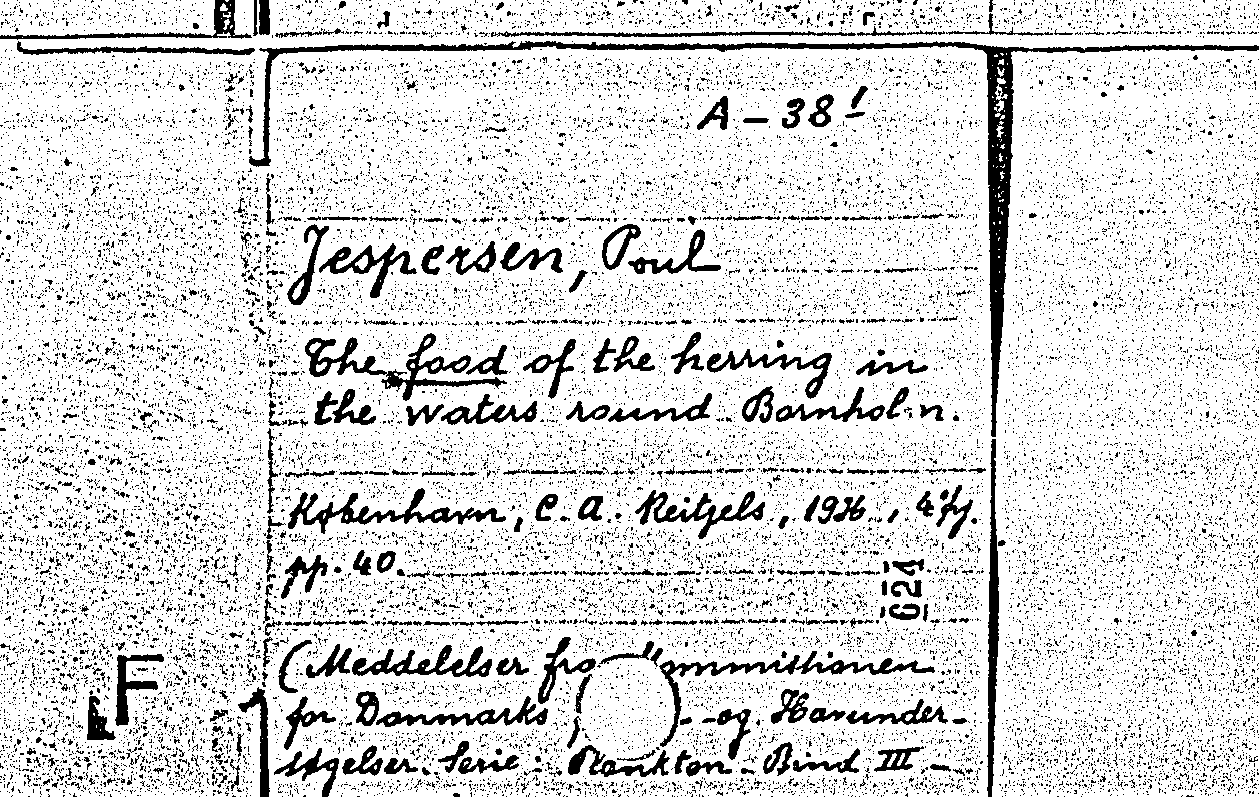 A – 38 !
Jespersen, Poul
The food of the herring in
the waters round Bornholm.
København, C. A. Reitzels, 1936, 4°fg.
pp. 40.
621
(Meddelelser fra Kommissionen
for Danmarks - og Havunder-
søgelser. Serie: Plankton - Bind III -
F